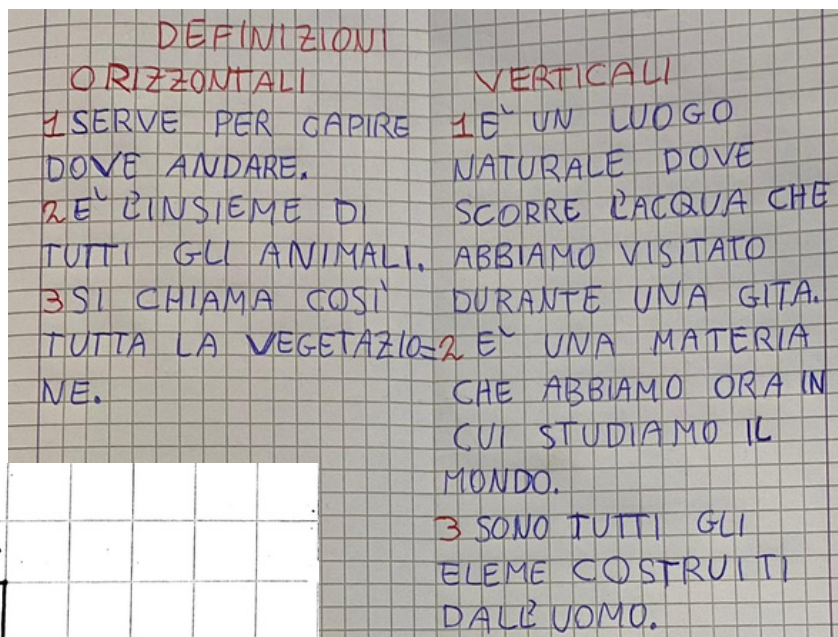 DEFINIZIONI
ORIZZONTALI
1 SERVE PER CAPIRE
DOVE ANDARE.
2 E` L'INSIEME DI
TUTTI GLI ANIMALI.
3 SI CHIAMA COSÌ
TUTTA LA VEGETAZIO=
NE.
VERTICALI
1 E` UN LUOGO
NATURALE DOVE
SCORRE L'ACQUA CHE
ABBIAMO VISITATO
DURANTE UNA GITA.
2 E` UNA MATERIA
CHE ABBIAMO ORA IN
CUI STUDIAMO IL
MONDO.
3 SONO TUTTI GLI
ELEME COSTRUITI
DALL'UOMO.